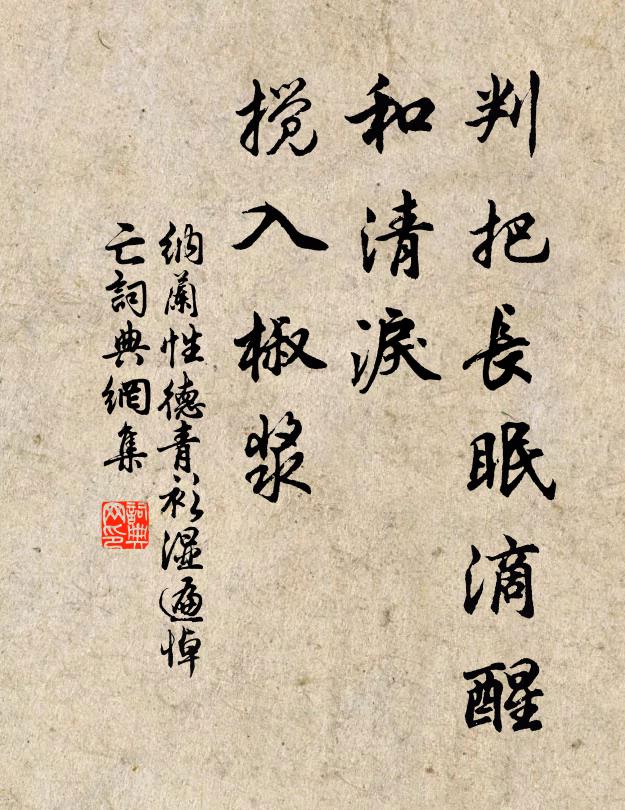 判把長眠滴醒
和清淚
攪入椒漿
納蘭性德青衫濕遍悼
亡詞典網集
詞典网印